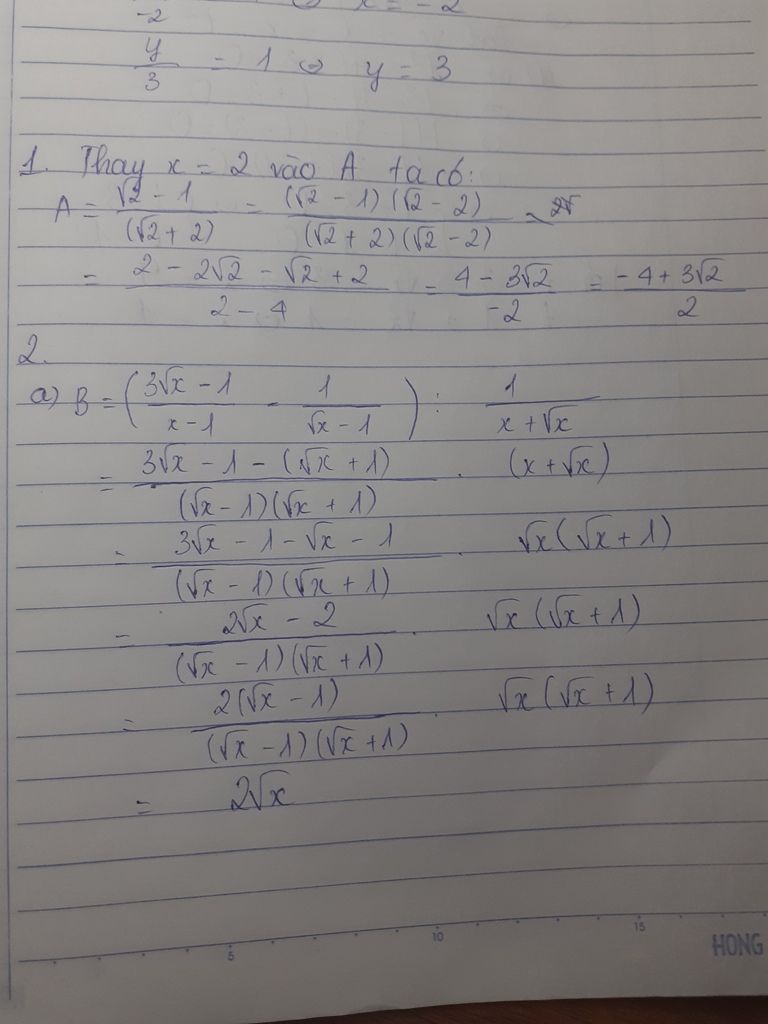 x = -2
-2
y/3 = 1 ⇔ y = 3
1. Thay x = 2 vào A ta có:
A = (√2 - 1)/((√2 + 2)) = ((√2 - 1)(√2 - 2))/((√2 + 2)(√2 - 2)) =
= (2 - 2√2 - √2 + 2)/(2 - 4) = (4 - 3√2)/(-2) = (-4 + 3√2)/2
2.
a) B = ((3√x - 1)/(x - 1) - 1/(√x - 1)) : 1/(x + √x)
= (3√x - 1 - (√x + 1))/((√x - 1)(√x + 1)) . (x + √x)
= (3√x - 1 - √x - 1)/((√x - 1)(√x + 1)) . √x(√x + 1)
= (2√x - 2)/((√x - 1)(√x + 1)) . √x(√x + 1)
= (2(√x - 1))/((√x - 1)(√x + 1)) . √x(√x + 1)
= 2√x
5 10 15 HONG